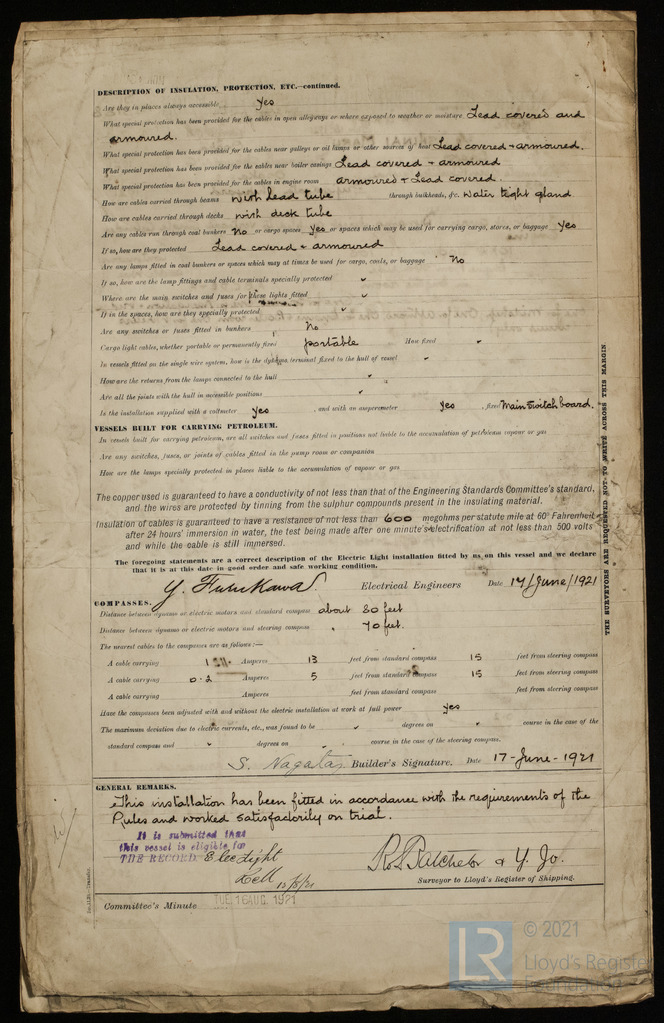 DESCRIPTION OF INSULATION, PROTECTION, ETC.—continued.
Are they in places always accessible Yes
What special protection has been provided for the cables in open alleyways or where exposed to weather or moisture Lead covered and
armoured.
What special protection has been provided for the cables near galleys or oil lamps or other sources of heat Lead covered + armoured.
What special protection has been provided for the cables near boiler casings Lead covered + armoured
What special protection has been provided for the cables in engine room armoured + Lead covered.
How are cables carried through beams with Lead tube through bulkheads, &c. Water tight gland
How are cables carried through decks with deck tube
Are any cables run through coal bunkers No or cargo spaces yes or spaces which may be used for carrying cargo, stores, or baggage yes
If so, how are they protected Lead covered + armoured
Are any lamps fitted in coal bunkers or spaces which may at times be used for cargo, coals, or baggage No
If so, how are the lamp fittings and cable terminals specially protected
Where are the main switches and fuses for these lights fitted
If in the spaces, how are they specially protected
Are any switches or fuses fitted in bunkers No
Cargo light cables, whether portable or permanently fixed portable How fixed
In vessels fitted on the single wire system, how is the dynamo terminal fixed to the hull of vessel
How are the returns from the lamps connected to the hull
Are all the joints with the hull in accessible positions
Is the installation supplied with a voltmeter yes, and with an amperemeter yes, fixed Main Switch board.
VESSELS BUILT FOR CARRYING PETROLEUM.
In vessels built for carrying petroleum, are all switches and fuses fitted in positions not liable to the accumulation of petroleum vapour or gas
Are any switches, fuses, or joints of cables fitted in the pump room or companion
How are the lamps specially protected in places liable to the accumulation of vapour or gas
The copper used is guaranteed to have a conductivity of not less than that of the Engineering Standards Committee's standard,
and the wires are protected by tinning from the sulphur compounds present in the insulating material.
Insulation of cables is guaranteed to have a resistance of not less than 600 megohms per statute mile at 60° Fahrenheit
after 24 hours' immersion in water, the test being made after one minute's electrification at not less than 500 volts
and while the cable is still immersed.
The foregoing statements are a correct description of the Electric Light installation fitted by us on this vessel and we declare
that it is at this date in good order and safe working condition.
Y. Furukawa Electrical Engineers Date 17/June/1921
COMPASSES.
Distance between dynamo or electric motors and standard compass about 80 feet
Distance between dynamo or electric motors and steering compass " 70 feet.
The nearest cables to the compasses are as follows:—
A cable carrying Amperes 13 feet from standard compass 15 feet from steering compass
A cable carrying 0.2 Amperes 5 feet from standard compass 15 feet from steering compass
A cable carrying Amperes feet from standard compass feet from steering compass
Have the compasses been adjusted with and without the electric installation at work at full power yes
The maximum deviation due to electric currents, etc., was found to be degrees on course in the case of the
standard compass and degrees on course in the case of the steering compass.
S. Nagatas Builder's Signature. Date 17-June-1921
GENERAL REMARKS.
This installation has been fitted in accordance with the requirements of the
Rules and worked satisfactorily on trial.
It is submitted that
this vessel is eligible for
THE RECORD Elec Light
15/8/21
& Y. Jo.
Surveyor to Lloyd's Register of Shipping.
Committee's Minute TUE. 16 AUG. 1921
THE SURVEYORS ARE REQUESTED NOT TO WRITE ACROSS THIS MARGIN
LR
© 2021
Lloyd's Register
Foundation